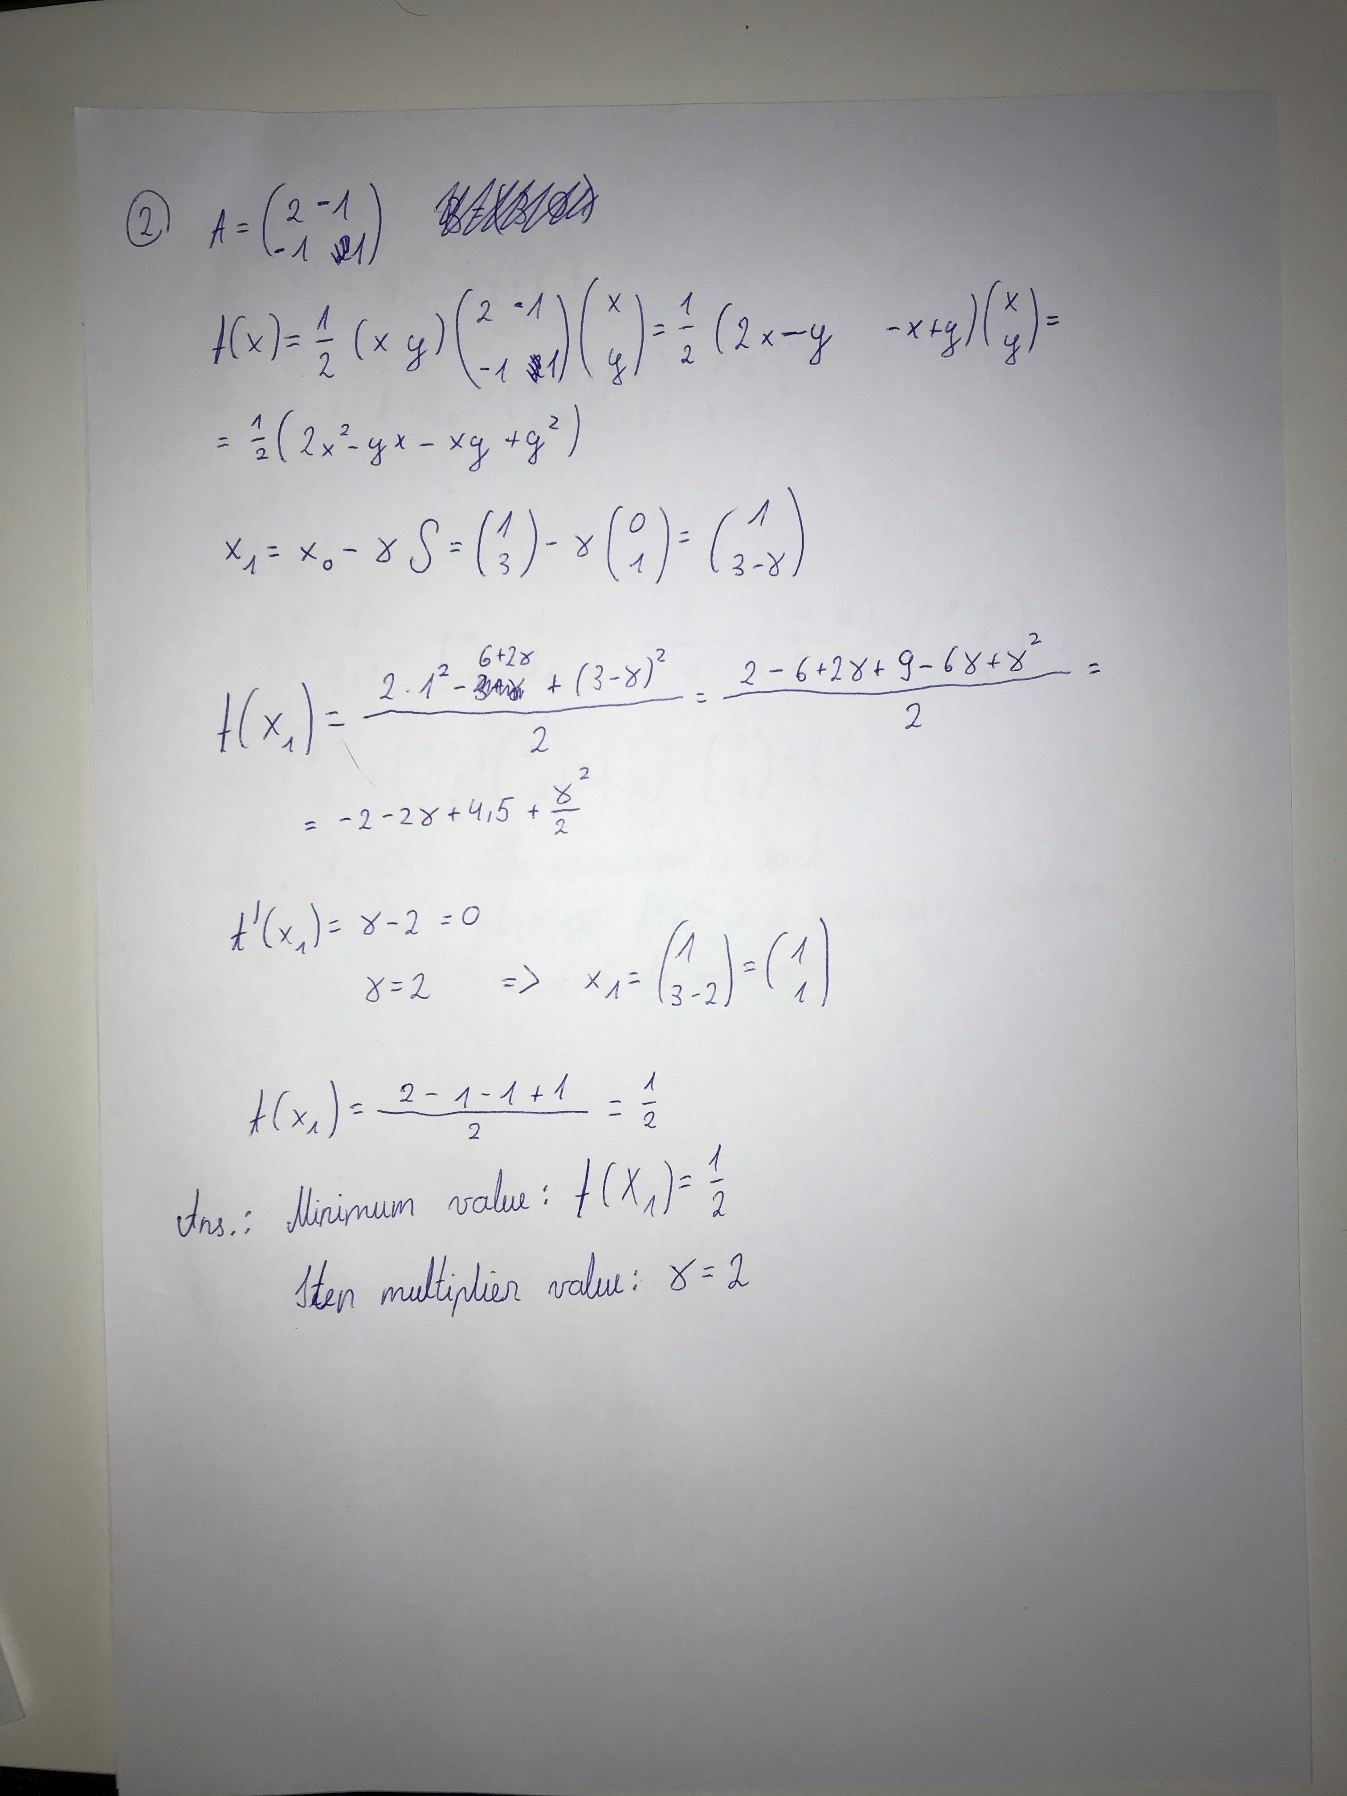 2 A = (2 -1
-1 1)
f(x) = 1/2 (x y) (2 -1
-1 1) (x
y) = 1/2 (2x-y -x+y) (x
y) =
= 1/2 (2x² - yx - xy + y²)
x₁ = x₀ - γ S = (1
3) - γ (0
1) = (1
3-γ)
f(x₁) = (2·1² - 6+2γ + (3-γ)²)/2 = (2-6+2γ+9-6γ+γ²)/2 =
= -2-2γ+4,5+γ²/2
f'(x₁) = γ-2 = 0
γ=2 => x₁ = (1
3-2) = (1
1)
f(x₁) = (2-1-1+1)/2 = 1/2
Ans.: Minimum value: f(X₁) = 1/2
Step multiplier value: γ = 2